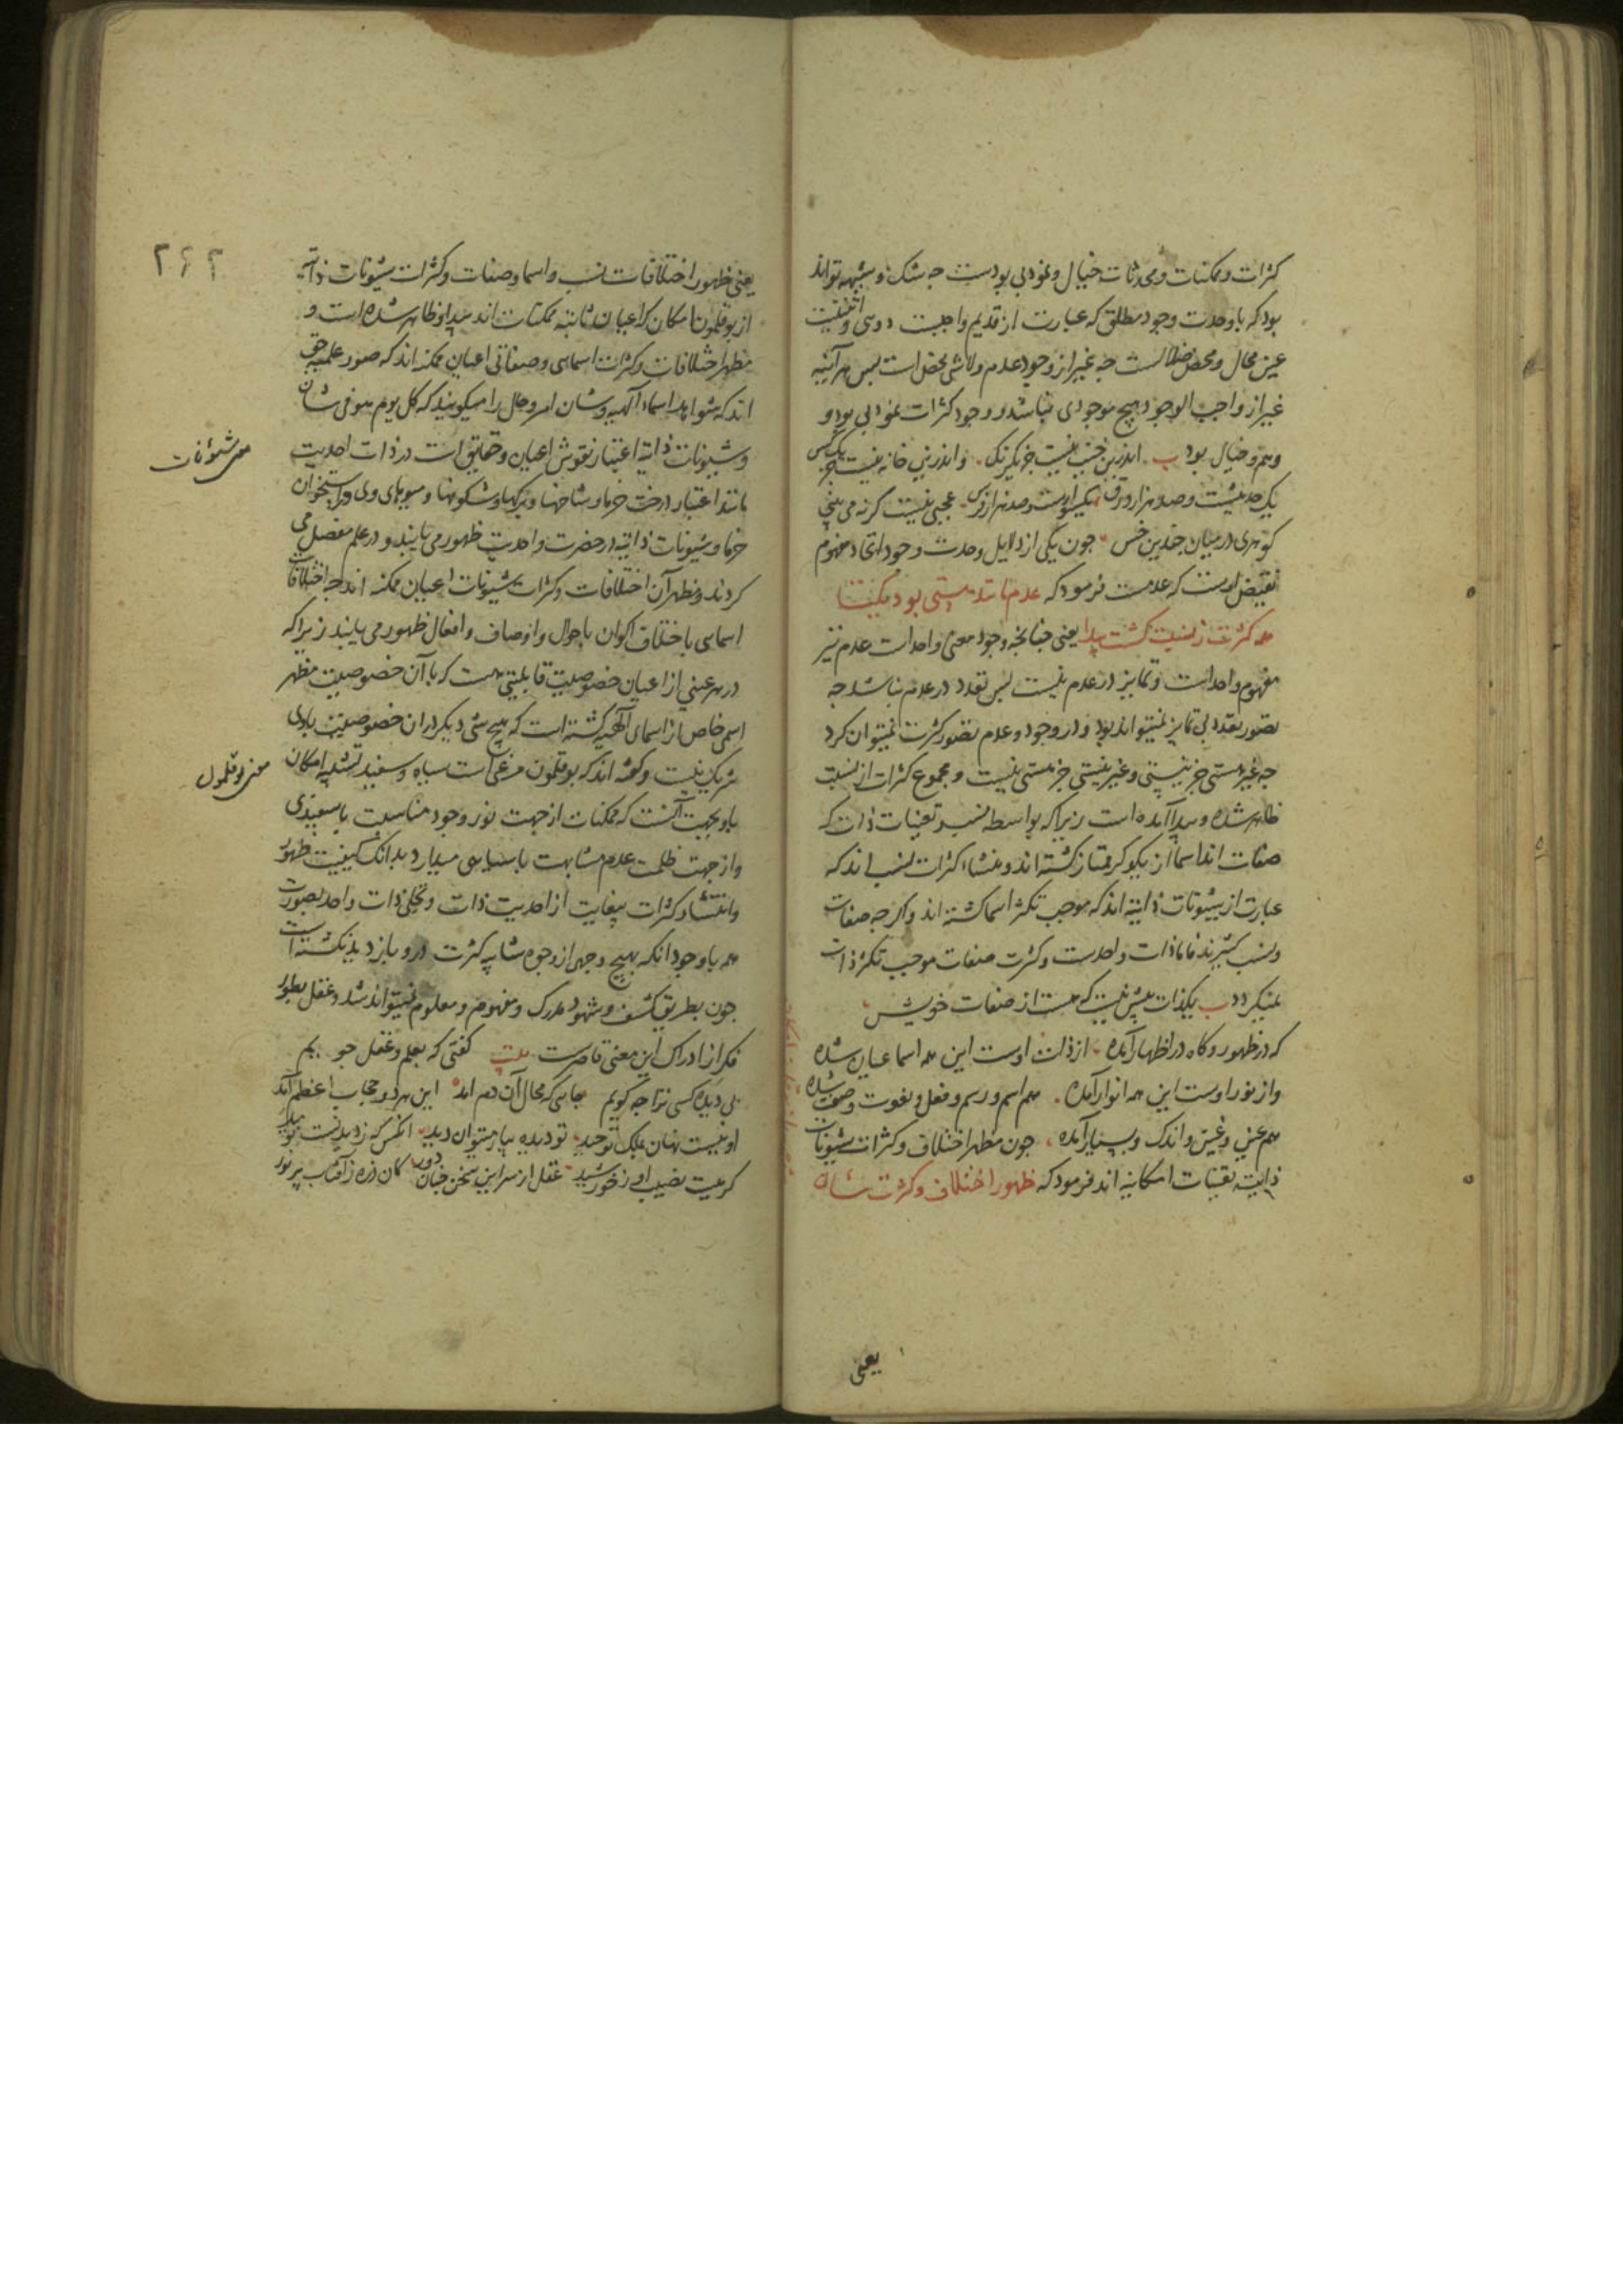 کثرات و ممکنات و محدثات خیال و نمود بی بودست چه شک و شبهه تواند
بود که با وحدت وجود مطلق که عبارت از قدیم واجبست دوئی و اثنینیت
عین محال و محض ضلالست چه غیر از وجود عدم و لاشی محض است پس هر آینه
غیر از واجب الوجود هیچ موجودی نباشد و وجود کثرات نمود بی بود و
وهم و خیال بود ب اندرین جنب نیست جز یکرنک و اندرین خانه نیست جز یک کس
یک حدیثست و صد هزار ورق یکسوارست و صد هزار فرس عجبی نیست کر نه می بینی
کوهری در میان چندین خس جون یکی از دلایل وحدت وجود اتحاد مفهوم
نقیض اوست که عدمست فرمود که عدم مانند هستی بود یکتا
همه کثرت ز نسبت کشت پیدا یعنی چنانچه وجود معنی واحداست عدم نیز
مفهوم واحد است و تمایز در عدم نیست پس تعدد در عدم نباشد چه
تصور تعدد بی تمایز نمیتواند بود و در وجود و عدم تصور کثرت نمیتوان کرد
چه غیر هستی جز نیستی و غیر نیستی جز هستی نیست و مجموع کثرات از نسبت
ظاهر شده و پیدا آمده است زیرا که بواسطه نسب و تعینات ذات که
صفات اند اسما از یکدیکر ممتاز کشته اند و منشاء کثرات نسب اند که
عبارت از شیونات ذاتیه اند که موجب تکثر اسما کشته اند و اکر چه صفات
و نسب کثیرند فاما ذات واحدست و کثرت صفات موجب تکثر ذات
نمیکردد ب یکذات بیش نیست که هست از صفات خویش
که در ظهور و کاه در اظهار آمده از ذات اوست این همه اسما عیان شده
واز نور اوست این همه انوار آمده هم اسم و رسم و فعل و نعوت و صفت شده
هم عین و غین و اندک و بسیار آمده جون مظهر اختلاف و کثرات شیونات
ذاتیه تعینات امکانیه اند فرمود که ظهور اختلاف و کثرت شان
یعنی
۲۶۲
یعنی ظهور اختلافات نسب و اسما و صفات و کثرات شیونات ذاتیه
از بوقلمون امکان که اعیان ثابته ممکنات اند پیدا و ظاهر شده است و
مظهر اختلافات و کثرات اسمائی و صفاتی اعیان ممکنه اند که صور علمیه حق
اند که شواهد اسماء الهیه و شان امر و حال را میکویند که کل یوم هو فی شان
و شیونات ذاتیه اعتبار نقوش اعیان و حقایق است در ذات احدیت
معنی شئونات
مانند اعتبار درخت خرما و شاخها و برکها و شکوفها و میوهای وی در استخوان
خرما و شیونات ذاتیه در حضرت واحدیت ظهور می یابند و در علم مفصل می
کردند و مظهر آن اختلافات و کثرات شیونات اعیان ممکنه اند چه اختلافات
اسمائی باختلاف اکوان باحوال و اوصاف و افعال ظهور می یابند زیرا که
در هر عینی از اعیان خصوصیت قابلیتی هست که با آن خصوصیت مظهر
اسمی خاص از اسمای الهیه کشته است که هیچ شی دیکر در ان خصوصیت با وی
شریک نیست و کفته اند که بوقلمون مرغی است سیاه و سفید تشبیه امکان
معنی بوقلمون
باو بجهت آنست که ممکنات از جهت نور وجود مناسبت با سفیدی
و از جهت ظلمت عدم مشابهت با سیاهی میدارد بدانک کیفیت ظهور
و انتشاء کثرات بیغایت از احدیت ذات و تجلی ذات واحد بصورت
همه با وجود انکه بهیچ وجهی از وجوه شایبه کثرت درو بازدید نکشته است
جون بطریق کشف و شهود مدرک و مفهوم و معلوم نمیتواند شد و عقل بطور
فکر از ادراک این معنی قاصرست بیت کفتی که بعلم و عقل جویم
بی دیده کسی ترا چه کویم جائی که محال آن دم اند این هر دو حجاب اعظم آند
او نیست نهان بملک توحید تو دیده بیار میتوان دید انکس که ز دیدنست نومید
کر نیست نصیب او ز خورشید عقل از سر این سخن چنان دور کان ذره ز آفتاب پر نور